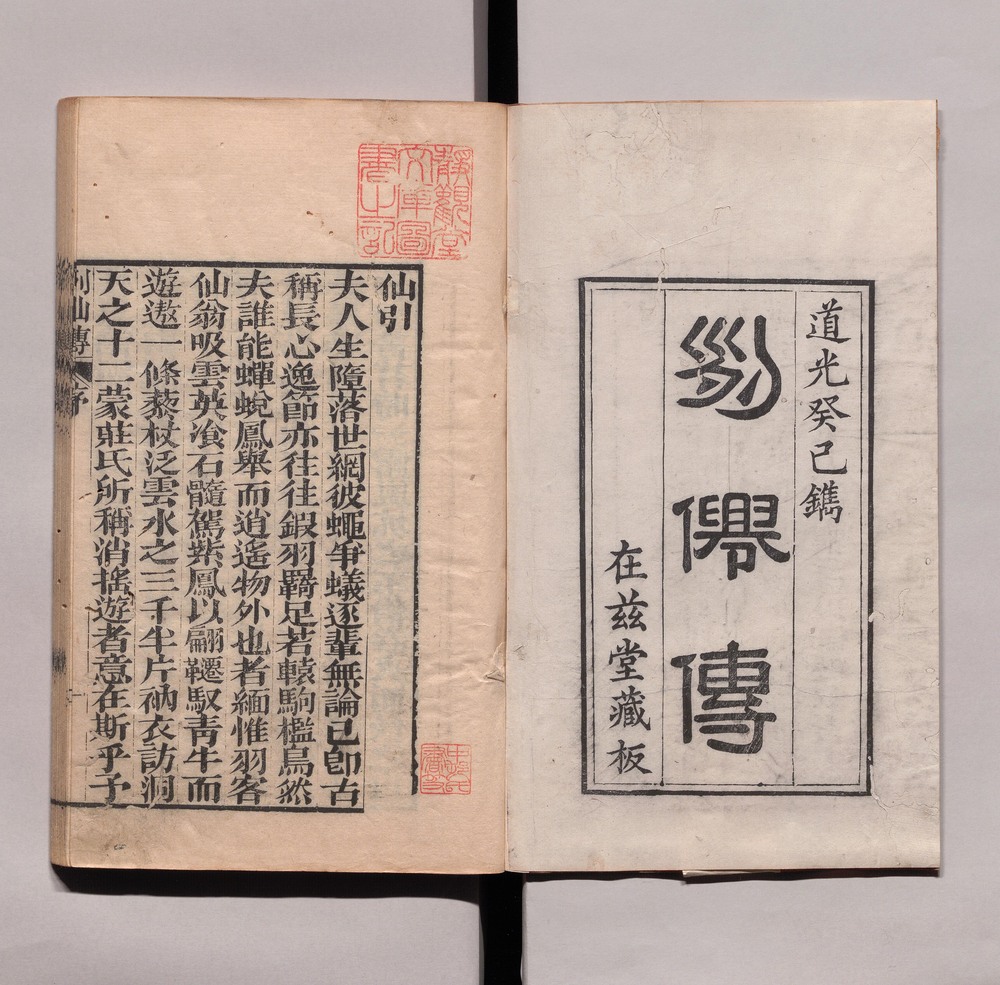 道光癸巳鐫
列僊傳
在茲堂藏板
靜觀堂
文庫圖
書之記
仙引
夫人生墮落世網彼蠅爭蟻逐輩無論已卽古
稱長心逸節亦往往鍜羽羇足若轅駒檻鳥然
夫誰能蟬蛻鳳舉而逍遙物外也者緬惟羽客
仙翁吸雲英飡石髓駕紫鳳以翩躚馭靑牛而
遊遨一條藜杖泛雲水之三千半片衲衣訪洞
天之十二蒙莊氏所稱消搖遊者意在斯乎予
列仙傳 序